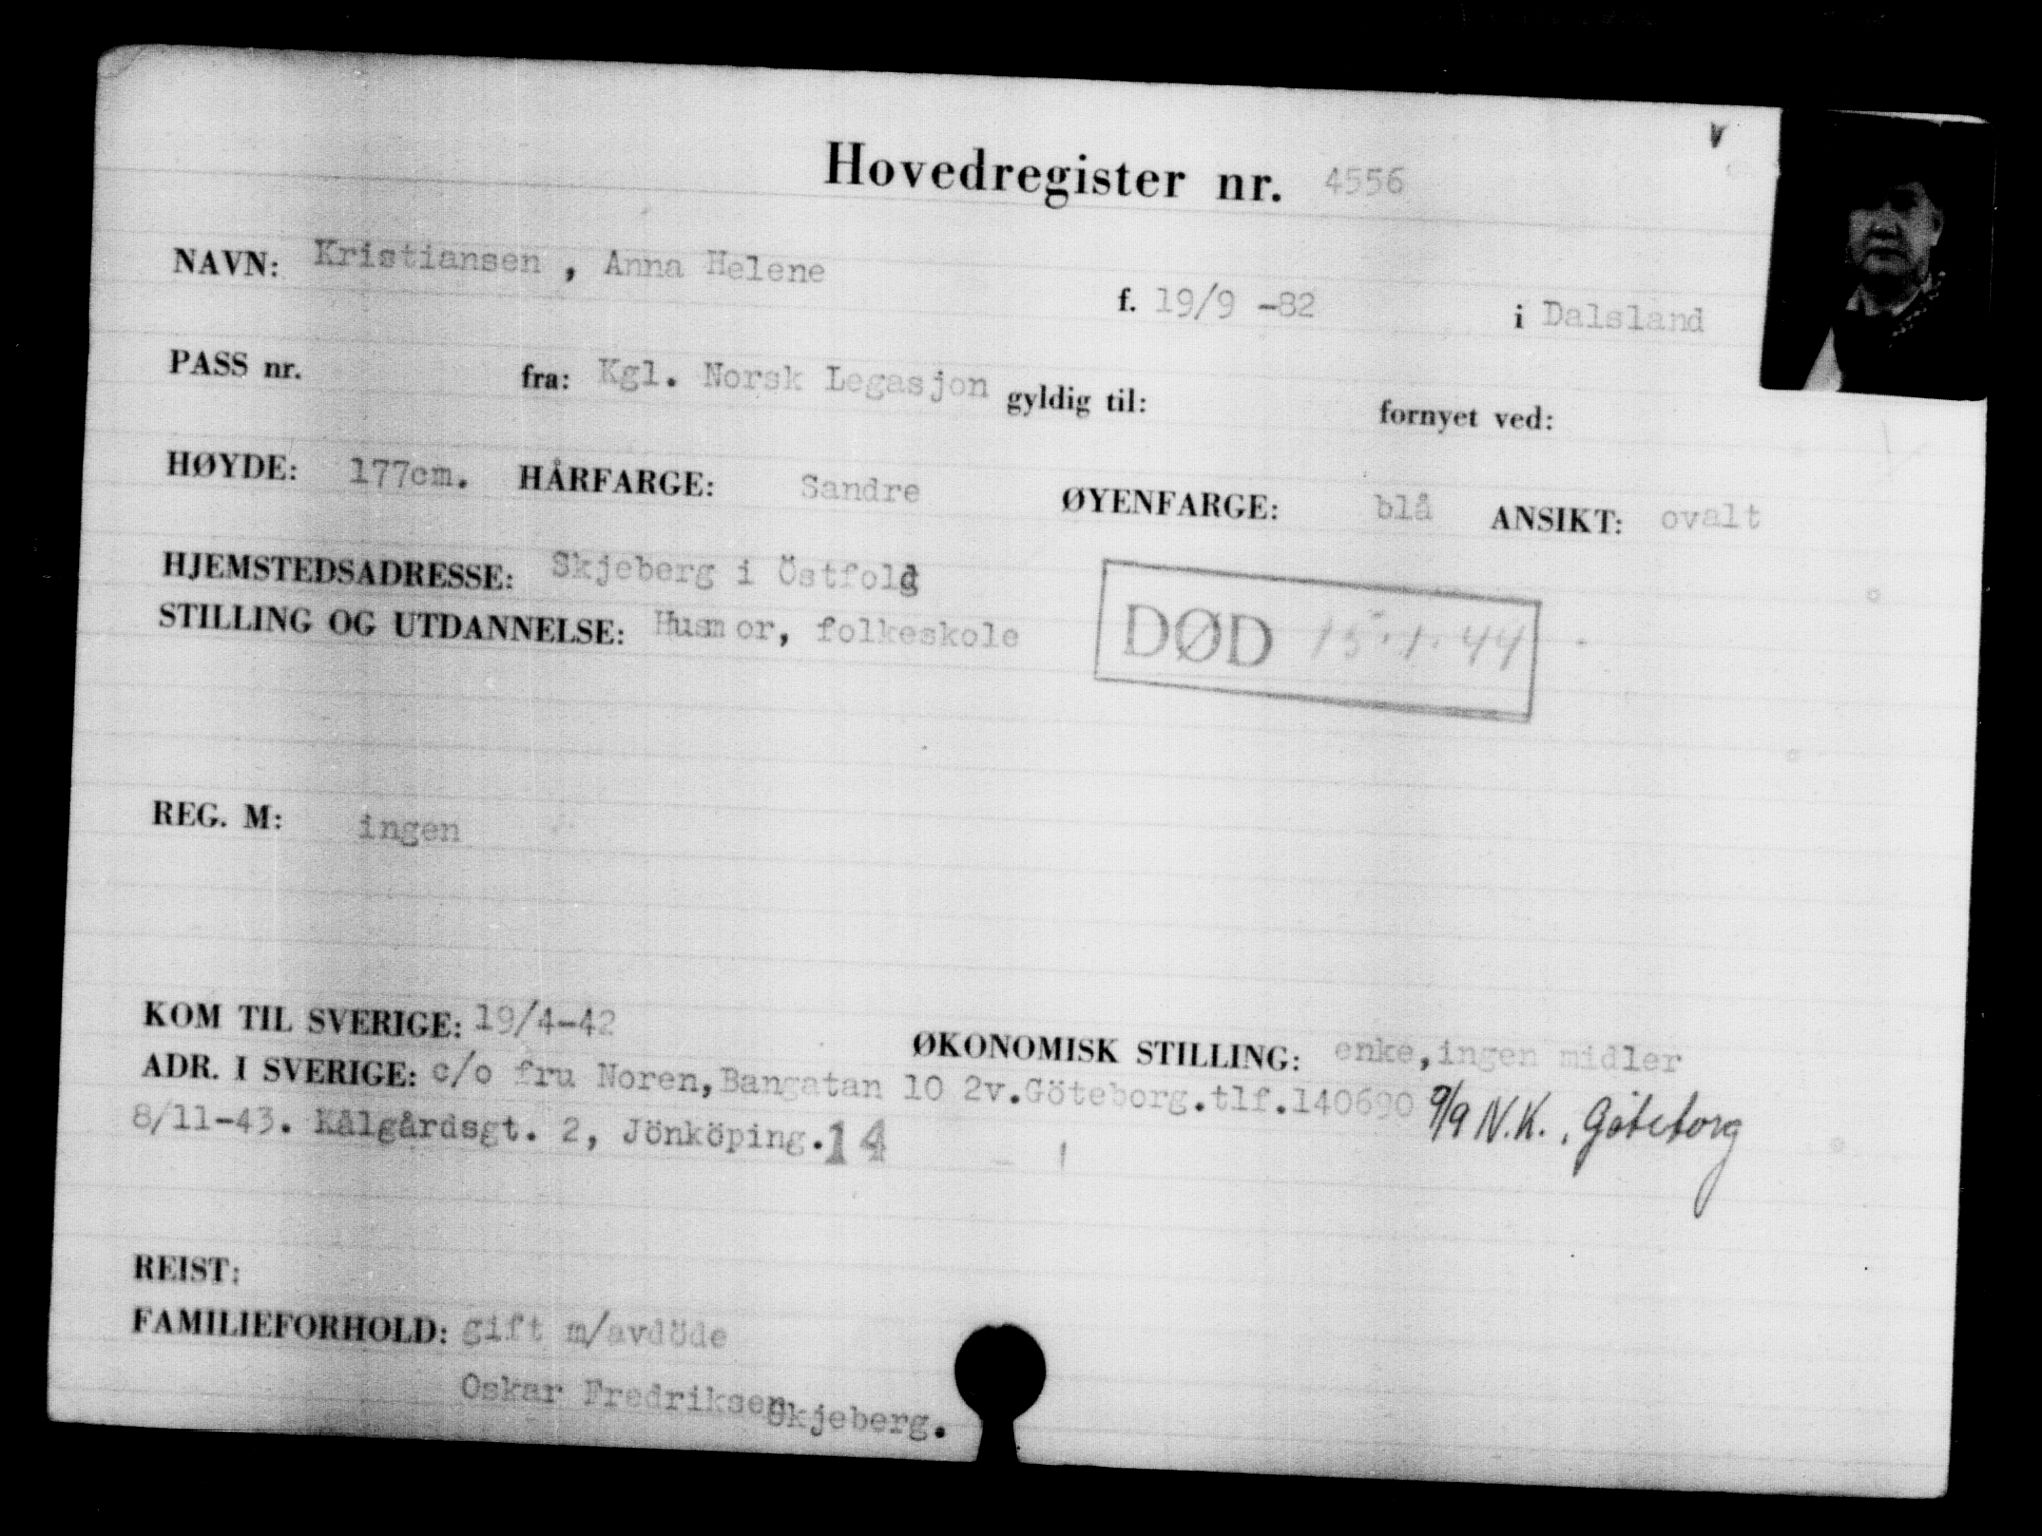 Hovedregister nr. 4556
NAVN: Kristiansen , Anna Helene f. 19/9 -82 i Dalsland
PASS nr. fra: Kgl. Norsk Legasjon gyldig til: fornyet ved:
HØYDE: 177cm. HÅRFARGE: Sandre ØYENFARGE: blå ANSIKT: ovalt
HJEMSTEDSADRESSE: Skjeberg i Östfold
STILLING OG UTDANNELSE: Husmor, folkeskole
DØD 15.1.44
REG. M: ingen
KOM TIL SVERIGE: 19/4-42 ØKONOMISK STILLING: enke,ingen midler
ADR. I SVERIGE: c/o fru Noren,Bangatan 10 2v.Göteborg.tlf.140690 9/9 N.K., Göteborg
8/11-43. Kålgårdsgt. 2, Jönköping.14
REIST:
FAMILIEFORHOLD: gift m/avdöde
Oskar Fredriksen Skjeberg.